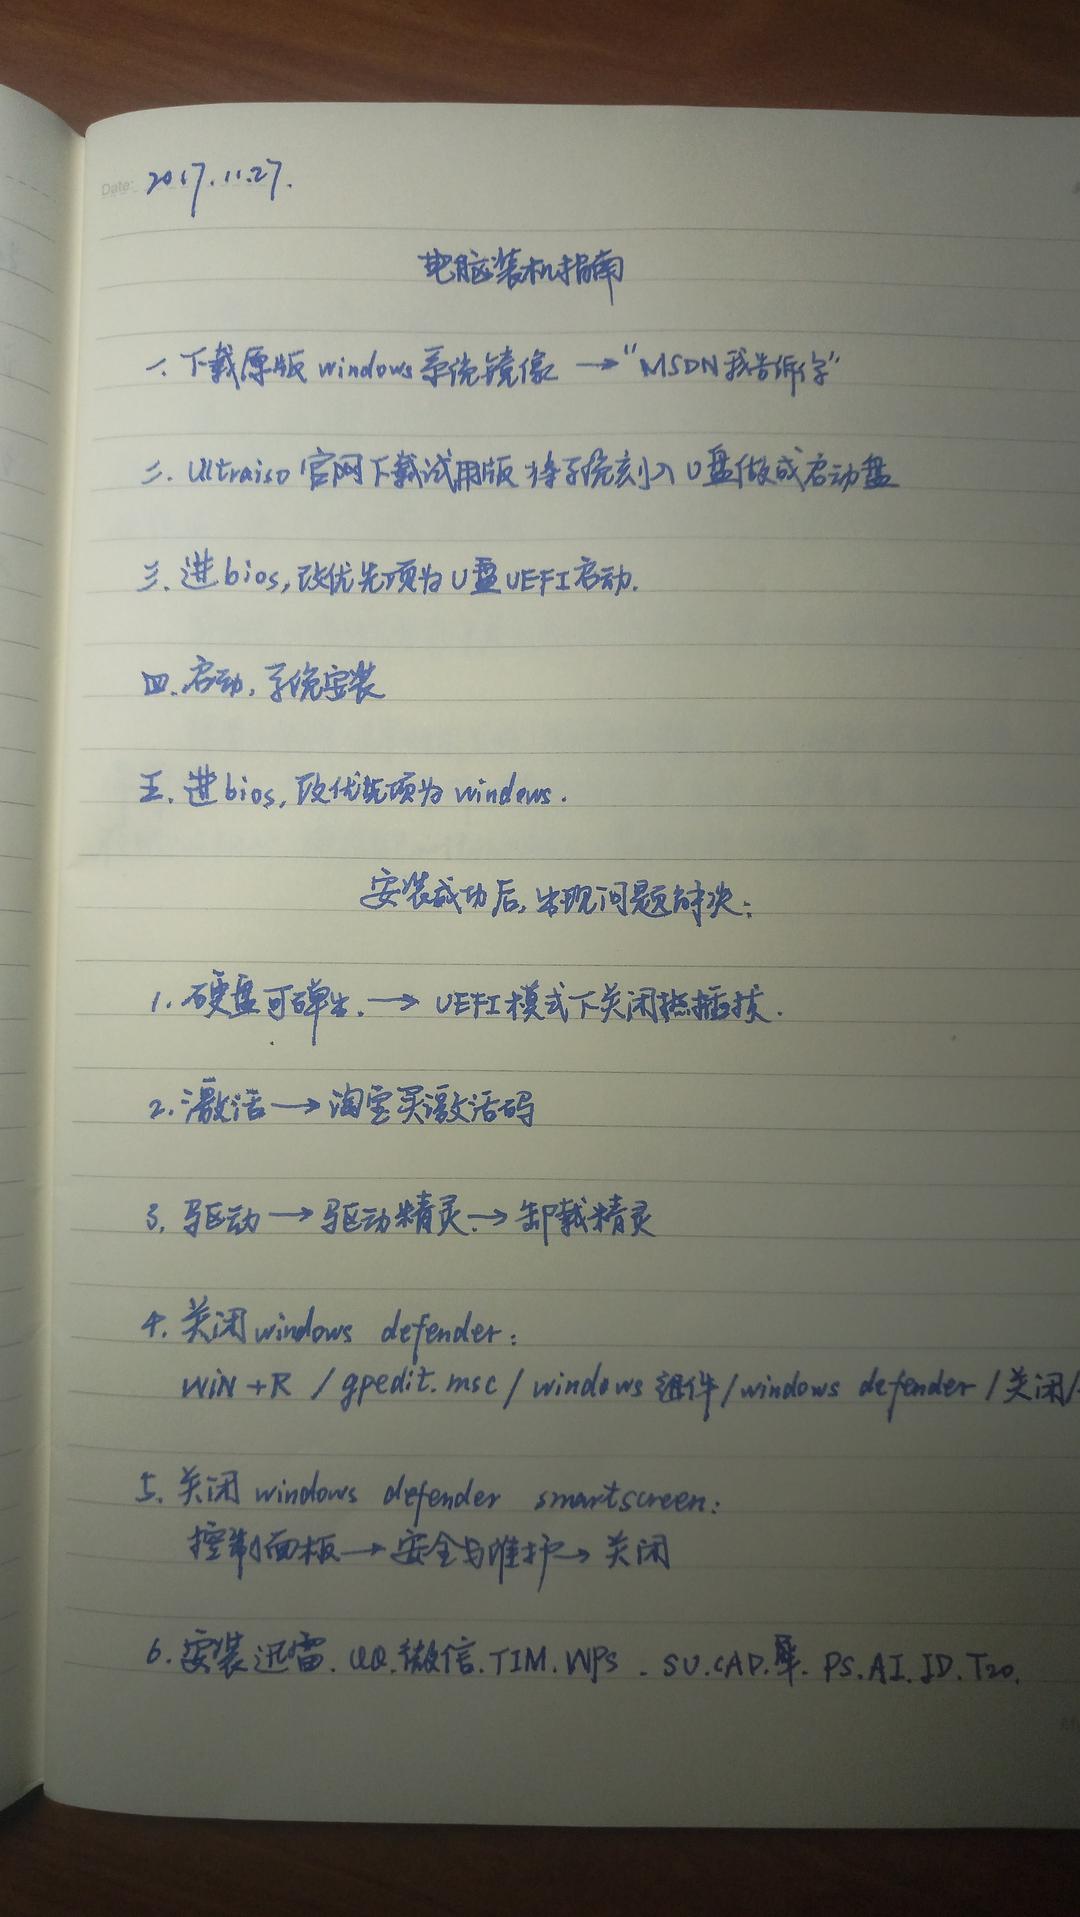 Date: 2017.11.27.
电脑装机指南
一、下载原版 windows 系统镜像 → "MSDN 我告诉你"
二. Ultraiso 官网下载试用版 将系统刻入U盘做成启动盘
三. 进bios, 改优先项为U盘UEFI启动.
四. 启动, 系统安装
五. 进bios, 改优先项为 windows.
安装成功后, 出现问题解决:
1. 硬盘可弹出. → UEFI模式下关闭热插拔.
2. 激活 → 淘宝买激活码
3. 驱动 → 驱动精灵 → 卸载精灵
4. 关闭 windows defender:
WiN +R / gpedit.msc / windows 组件 / windows defender / 关闭 /
5. 关闭 windows defender smartscreen:
控制面板 → 安全与维护 → 关闭
6. 安装迅雷. QQ. 微信. TIM. WPS. SU. CAD. PS. AI. ID. T20.